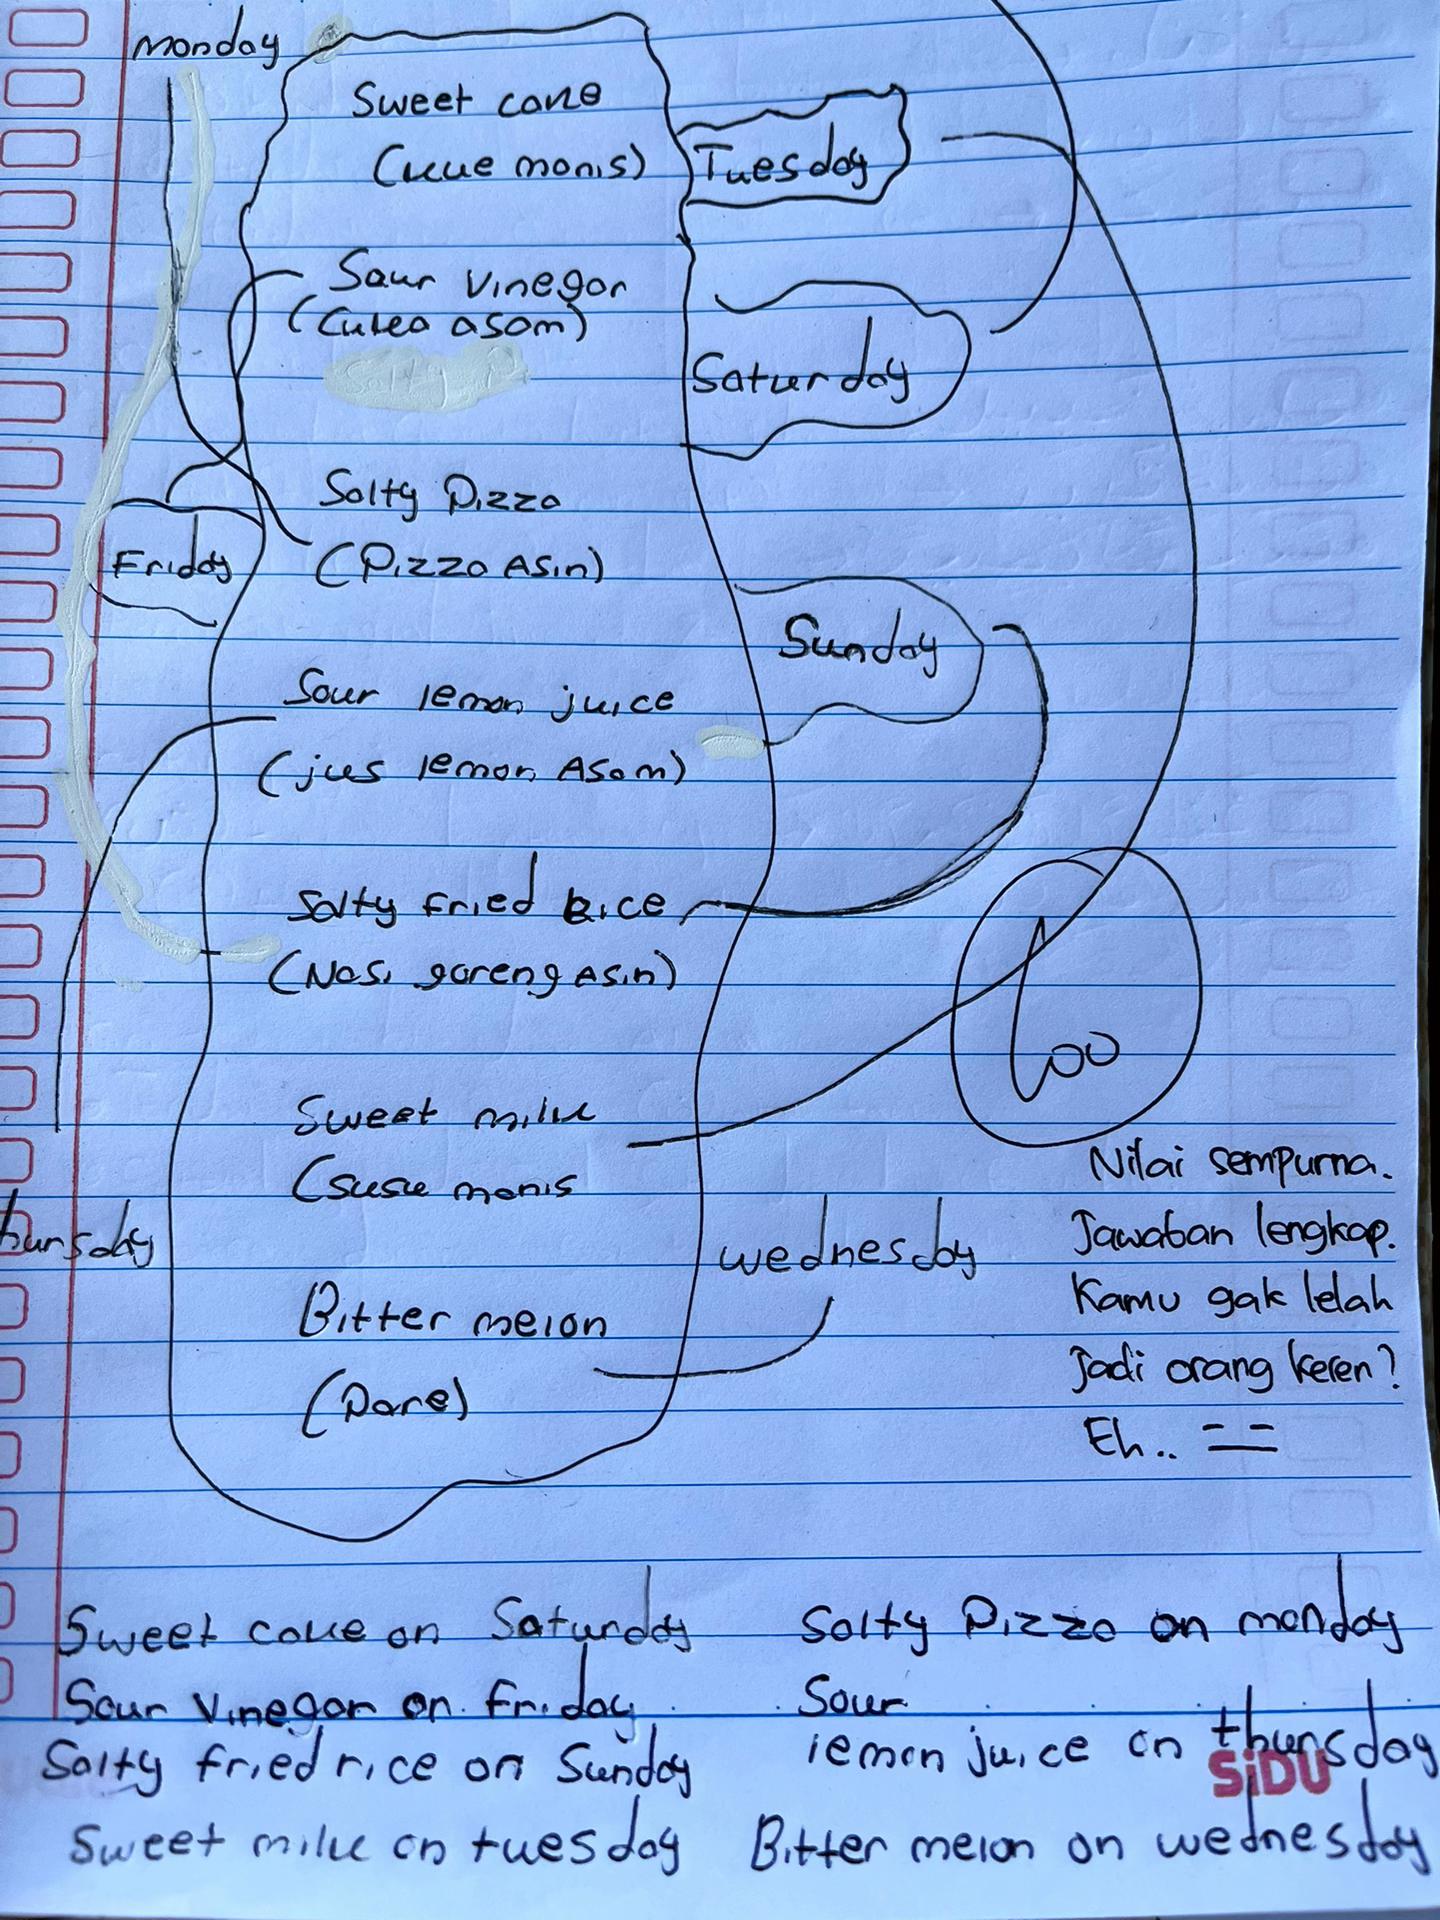 monday
Sweet cake
(kue manis)
Tuesday
Sour vinegar
(Cuka asam)
Saturday
Salty Pizza
(Pizza Asin)
Friday
Sunday
Sour lemon juice
(jus lemon Asam)
Salty Fried Rice
(Nasi goreng Asin)
100
Sweet milk
(susu manis
Nilai sempurna.
Jawaban lengkap.
hursday
wednesday
Kamu gak lelah
Bitter melon
Jadi orang keren?
(Pare)
Eh..
Sweet cake on Saturday
Salty Pizza on monday
Sour vinegar on Friday
Sour
lemon juice on thursday
Salty fried rice on Sunday
SiDU
Sweet milk on tuesday
Bitter melon on wednesday